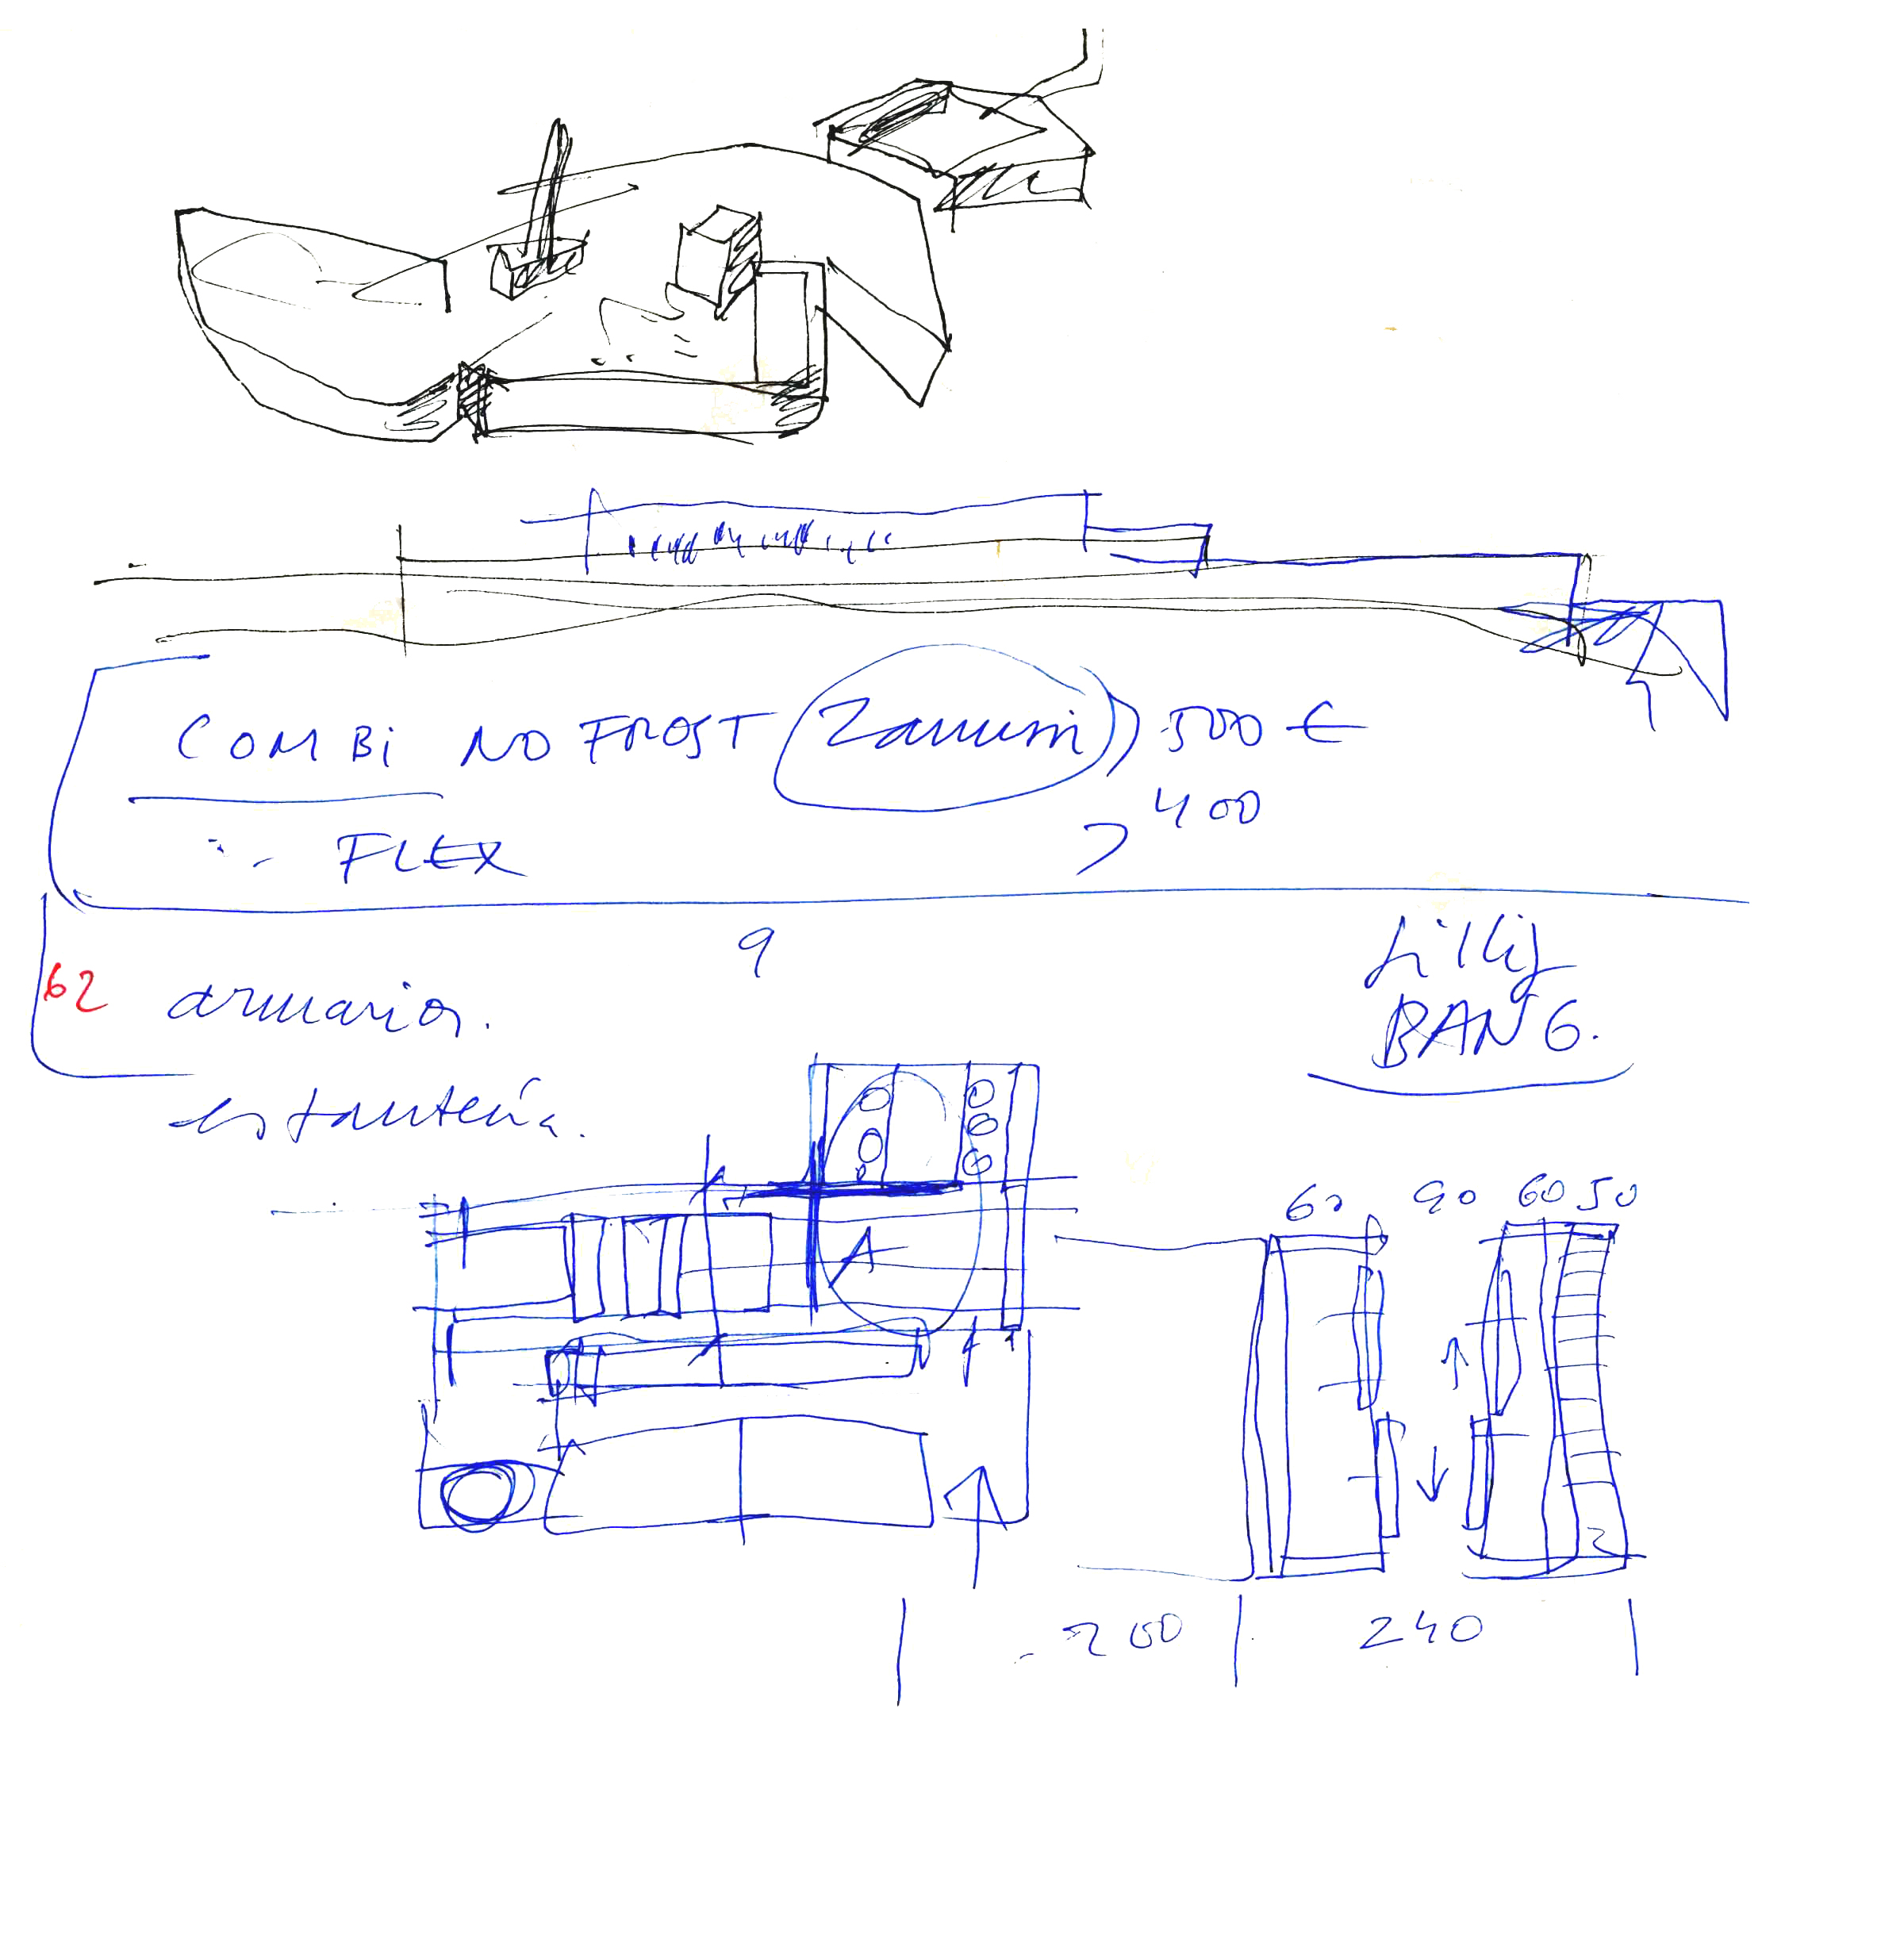 COMBI NO FROST (Zanussi) 500 €
FLEX > 400
9
62 armarios.
estantería.
BANG.
A
60 90 60 50
200 240